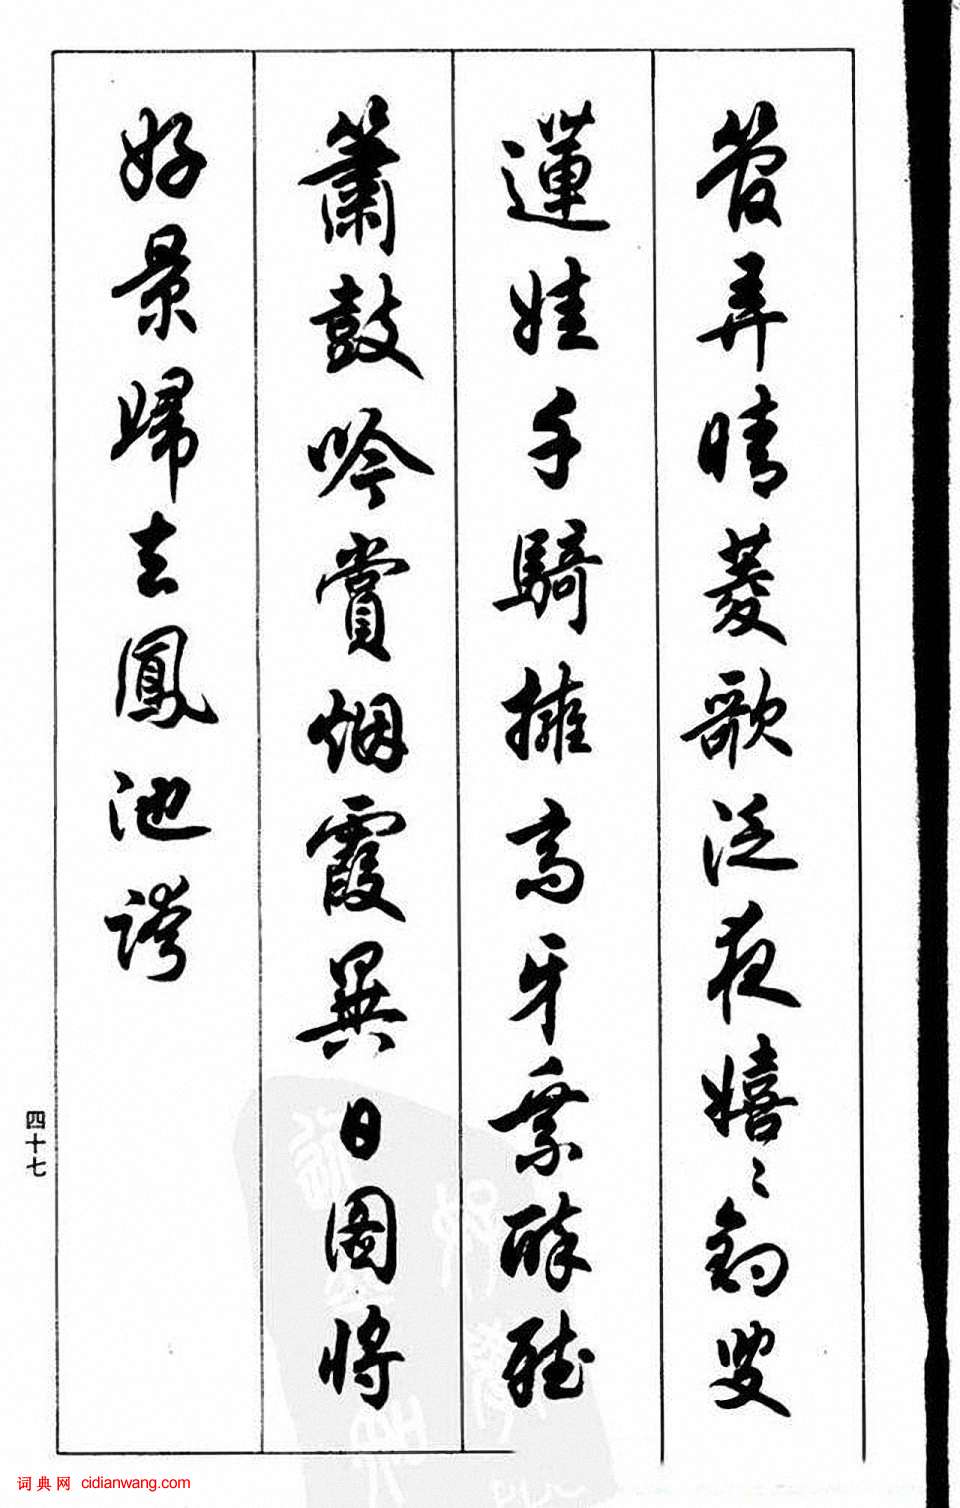 管弄晴菱歌泛夜嬉〻釣叟
蓮娃千騎擁高牙乗醉聽
簫鼓吟賞烟霞異日圖將
好景歸去鳳池誇
四十七
词典网 cidianwang.com